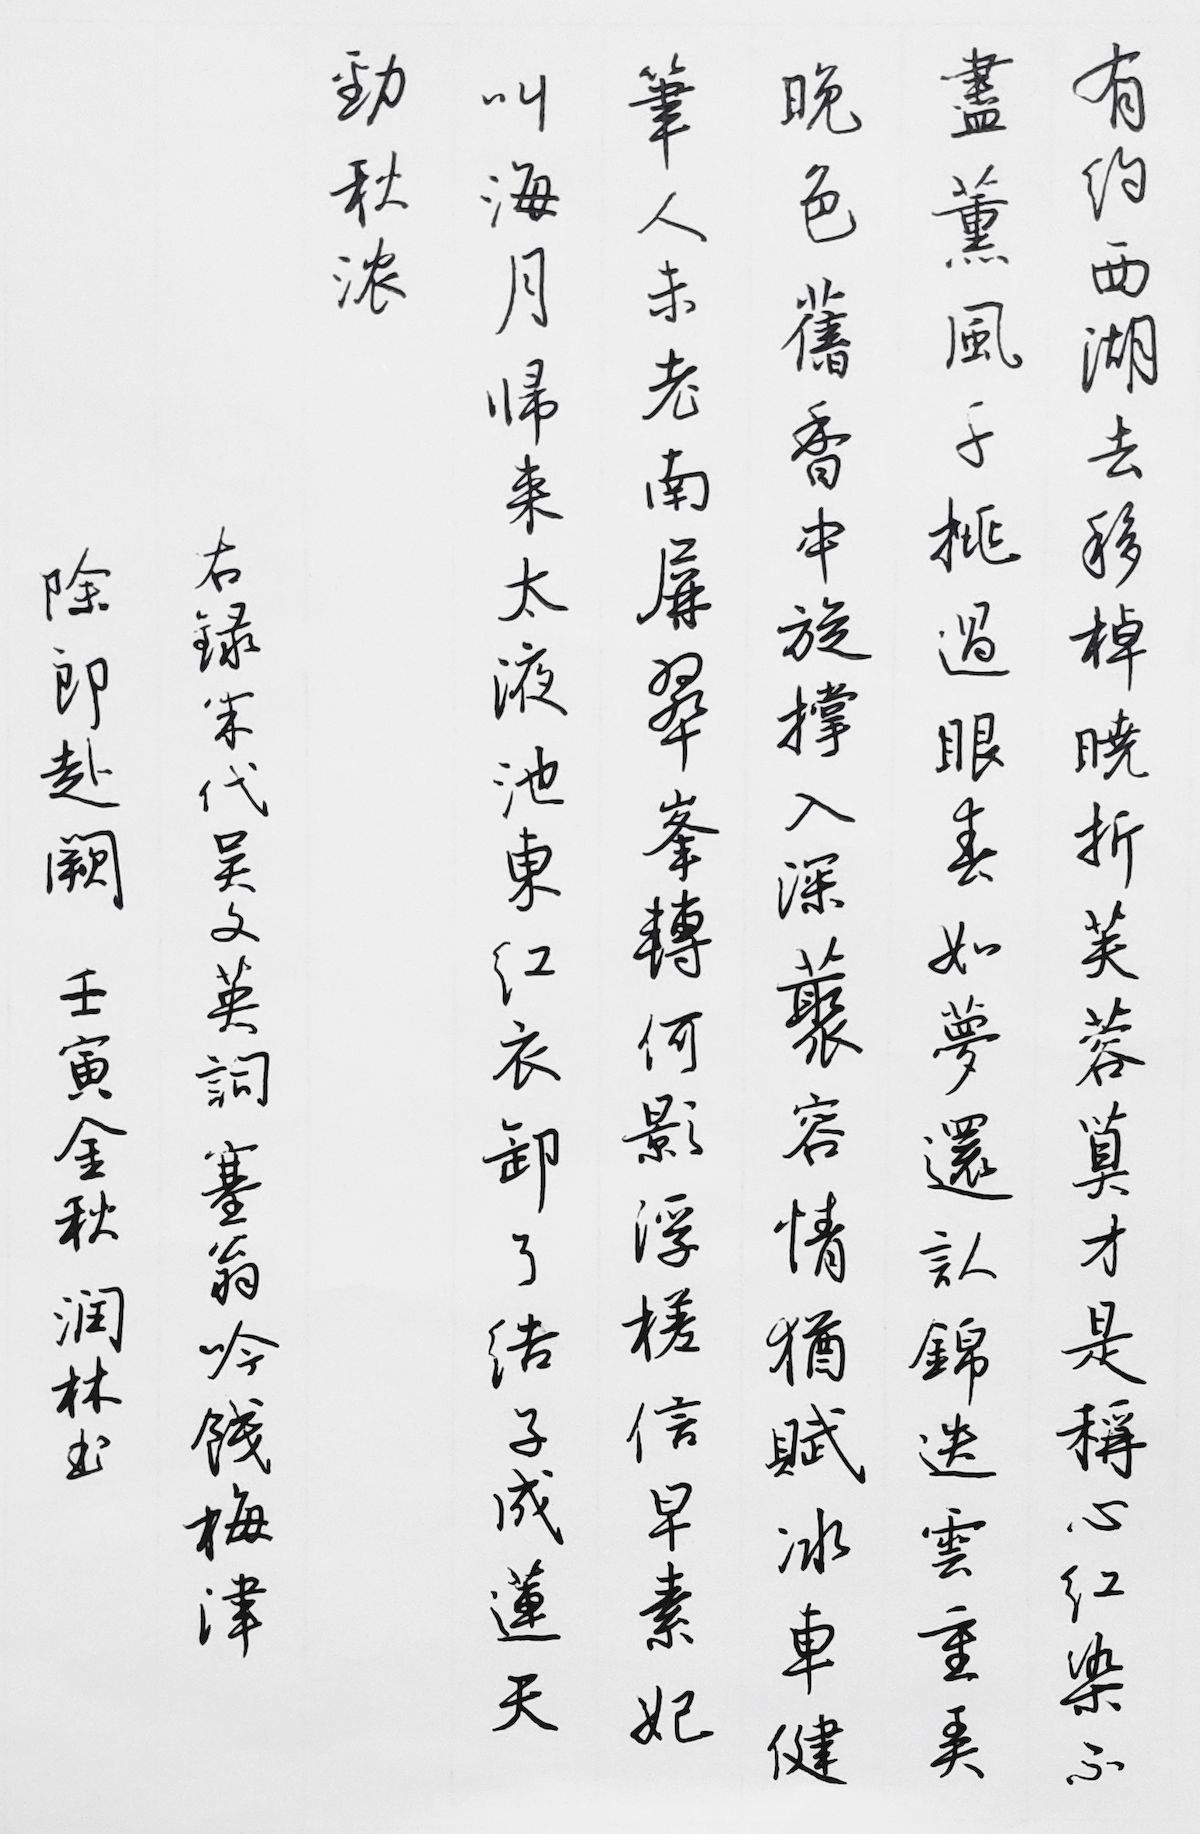 有约西湖去移棹曉折芙蓉算才是稱心红染不
盡薰風千桃過眼春如夢還认錦迭雲重弄
晚色舊香中旋撑入深藂容情猶賦冰車健
筆人未老南屏翠峯轉何影浮槎信早素妃
叫海月归来太液池東红衣卸了结子成蓮天
劲秋浓
右録宋代吴文英詞 塞翁吟餞梅津
除郎赴阙 壬寅金秋 润林书